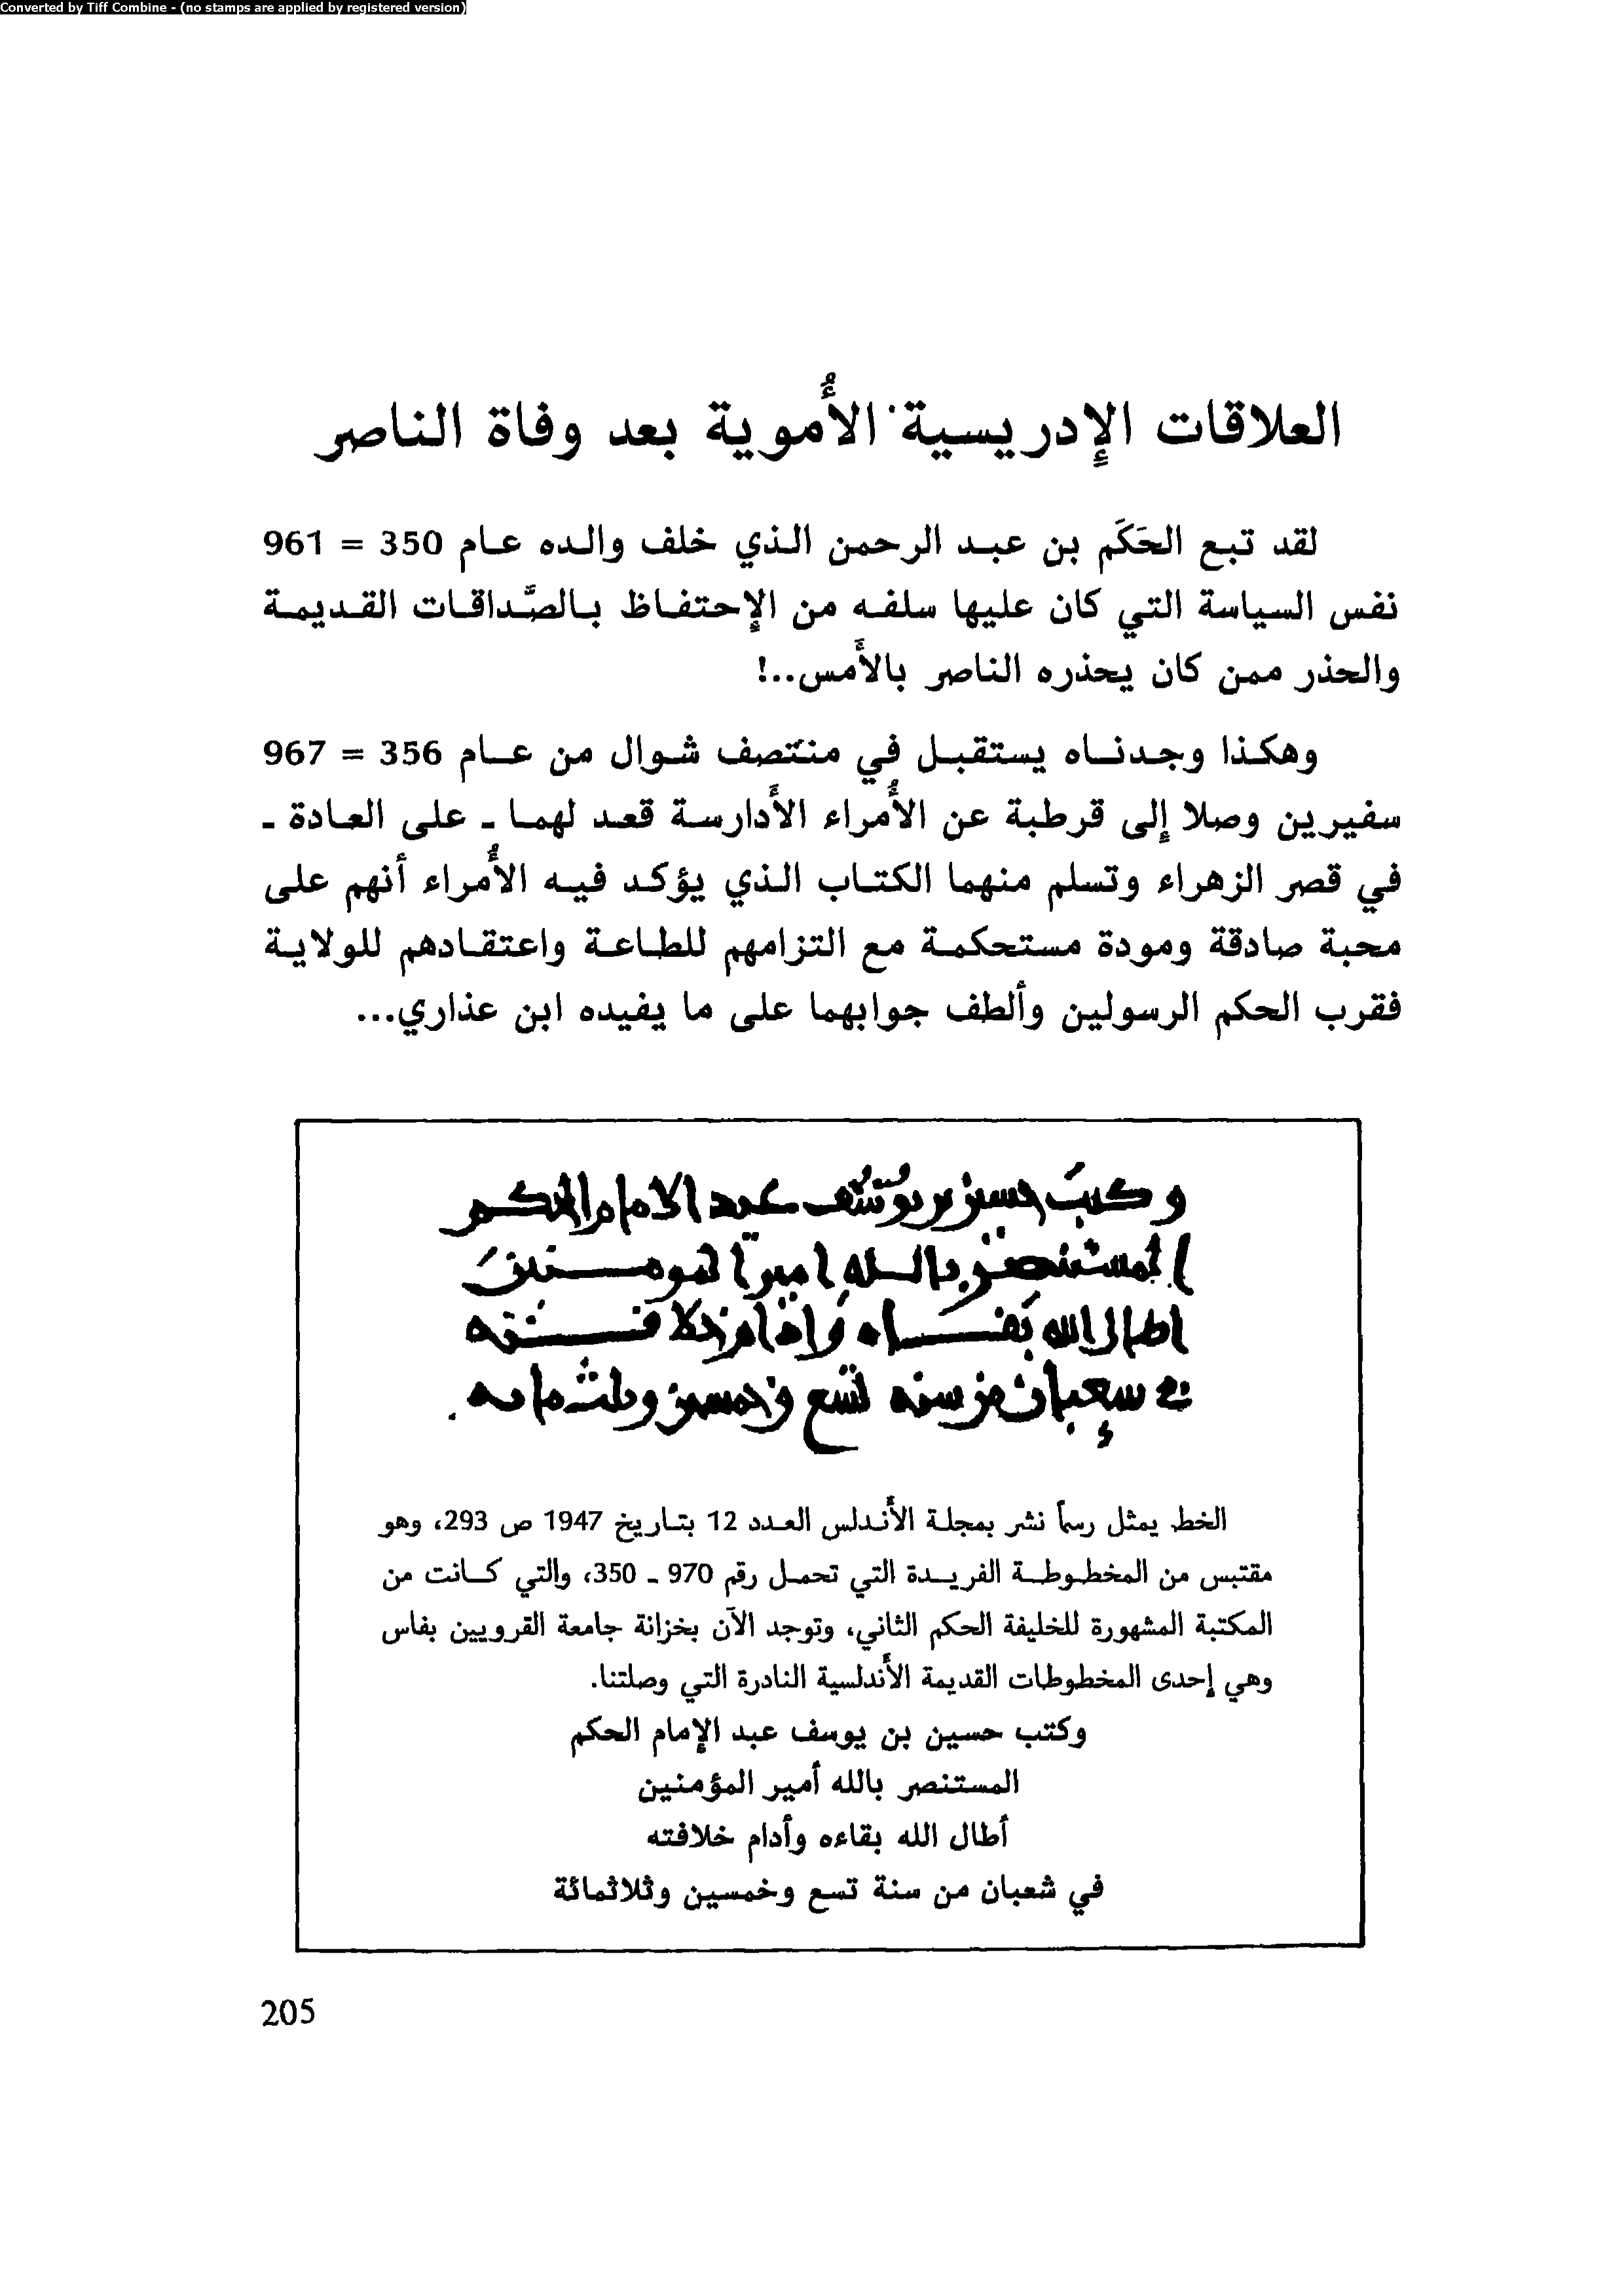 Converted by Tiff Combine - (no stamps are applied by registered version)
العلاقات الإدريسية الأُموية بعد وفاة الناصر
لقد تبع الحَكَم بن عبد الرحمن الذي خلف والده عام 350 = 961
نفس السياسة التي كان عليها سلفه من الإحتفاظ بالصَّداقات القديمة
والحذر ممن كان يحذره الناصر بالأَمس..!
وهكذا وجدناه يستقبل في منتصف شوال من عام 356 = 967
سفيرين وصلا إلى قرطبة عن الأُمراء الأَدارسة قعد لهما ـ على العادة ـ
في قصر الزهراء وتسلم منهما الكتاب الذي يؤكد فيه الأُمراء أنهم على
محبة صادقة ومودة مستحكمة مع التزامهم للطاعة واعتقادهم للولاية
فقرب الحكم الرسولين وألطف جوابهما على ما يفيده ابن عذاري...
وكتب حسين بن يوسف عبد الامام الحكم
المستنصر بالله امير المومنين
اطال الله بقاه وادام خلافته
في شعبان من سنه تسع وخمسين وثلث مايه.
الخط يمثل رسماً نشر بمجلة الأَندلس العدد 12 بتاريخ 1947 ص 293، وهو
مقتبس من المخطوطة الفريدة التي تحمل رقم 970 ـ 350، والتي كانت من
المكتبة المشهورة للخليفة الحكم الثاني، وتوجد الآن بخزانة جامعة القرويين بفاس
وهي إحدى المخطوطات القديمة الأَندلسية النادرة التي وصلتنا.
وكتب حسين بن يوسف عبد الإمام الحكم
المستنصر بالله أمير المؤمنين
أطال الله بقاءه وأدام خلافته
في شعبان من سنة تسع وخمسين وثلاثمائة
205